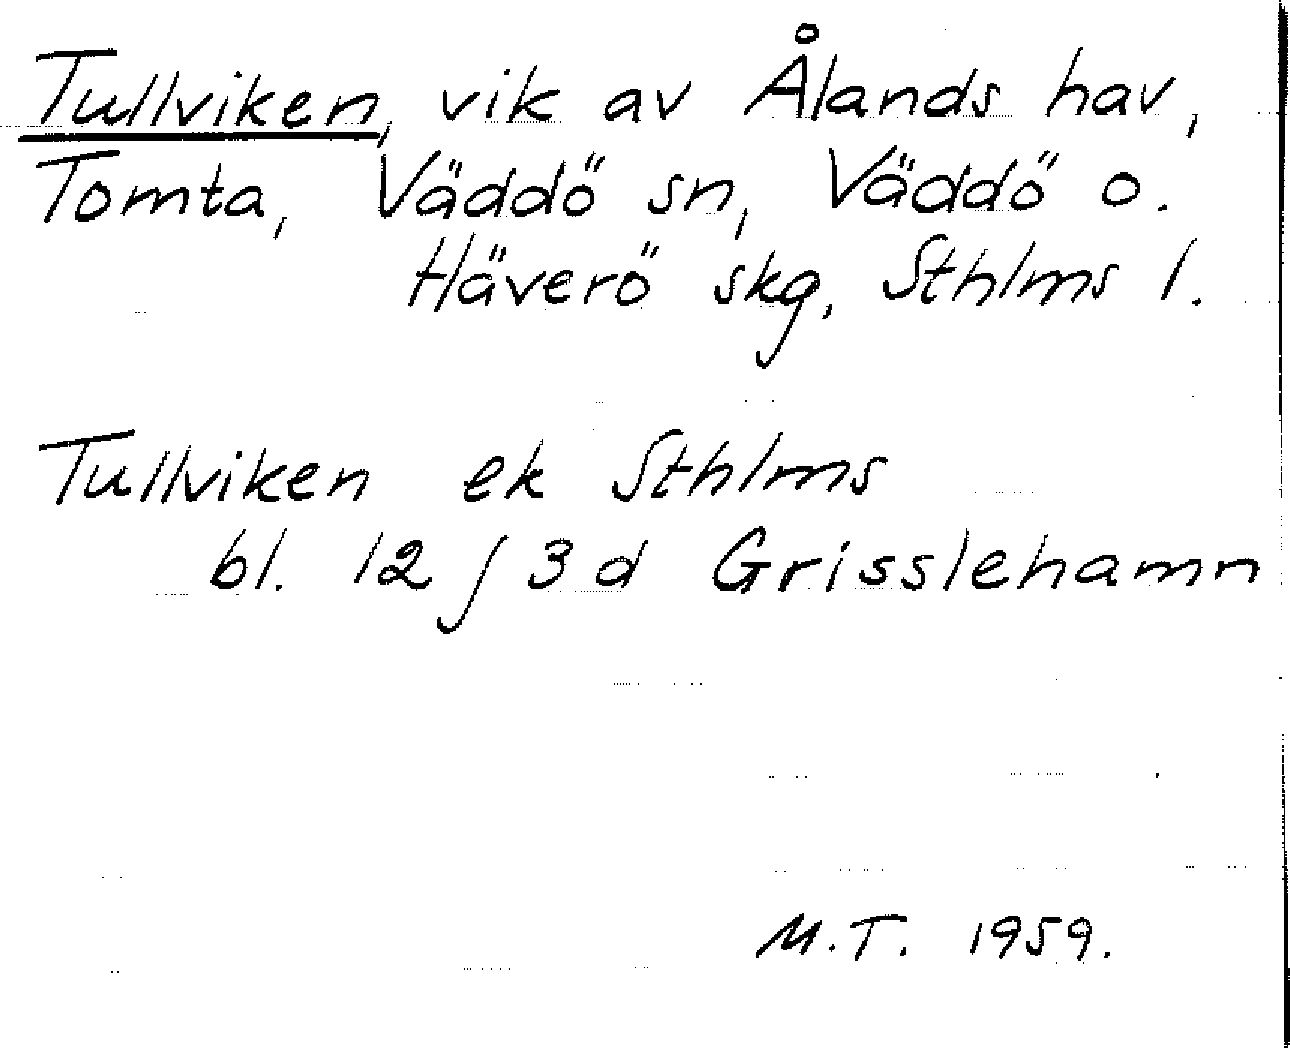 Tullviken, vik av Ålands hav,
Tomta, Väddö sn, Väddö o.
Häverö skg, Sthlms l.
Tullviken ek Sthlms
bl. 12 J 3 d Grisslehamn
M.T. 1959.